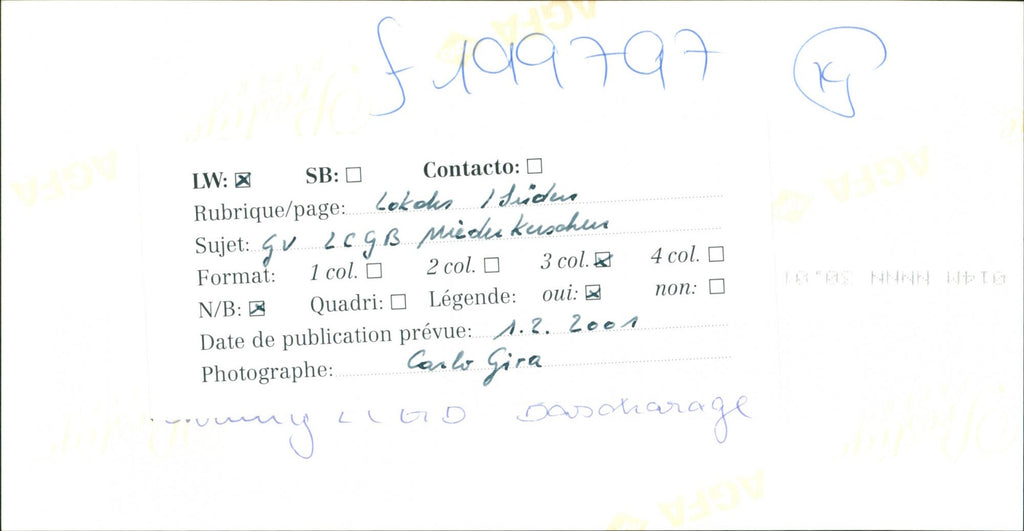 f 199797 KJ
LW: ☒ SB: ☐ Contacto: ☐
Rubrique/page: Lokales / Süden
Sujet: GV LCGB Niederkerschen
Format: 1 col. ☐ 2 col. ☐ 3 col. ☒ 4 col. ☐
N/B: ☒ Quadri: ☐ Légende: oui: ☒ non: ☐
Date de publication prévue: 1.2.2001
Photographe: Carlo Gira
LCGB Bascharage
AGFA
AGFA
AGFA
AGFA